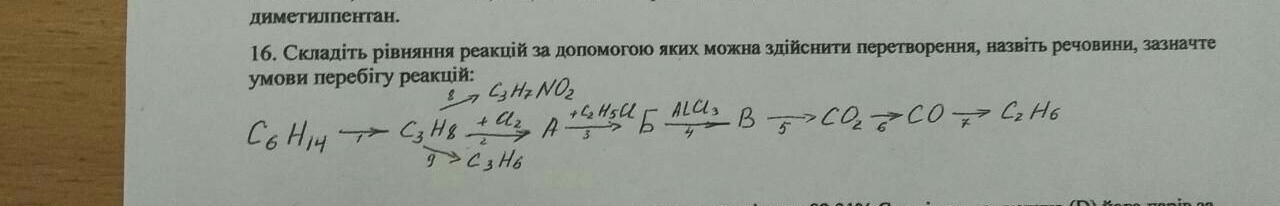 диметилпентан.
16. Складіть рівняння реакцій за допомогою яких можна здійснити перетворення, назвіть речовини, зазначте
умови перебігу реакцій:
8 → C3H7NO2
C6H14 →1 C3H8 + Cl2 →2 А + C2H5Cl →3 Б AlCl3 →4 В →5 CO2 →6 CO →7 C2H6
9 → C3H6